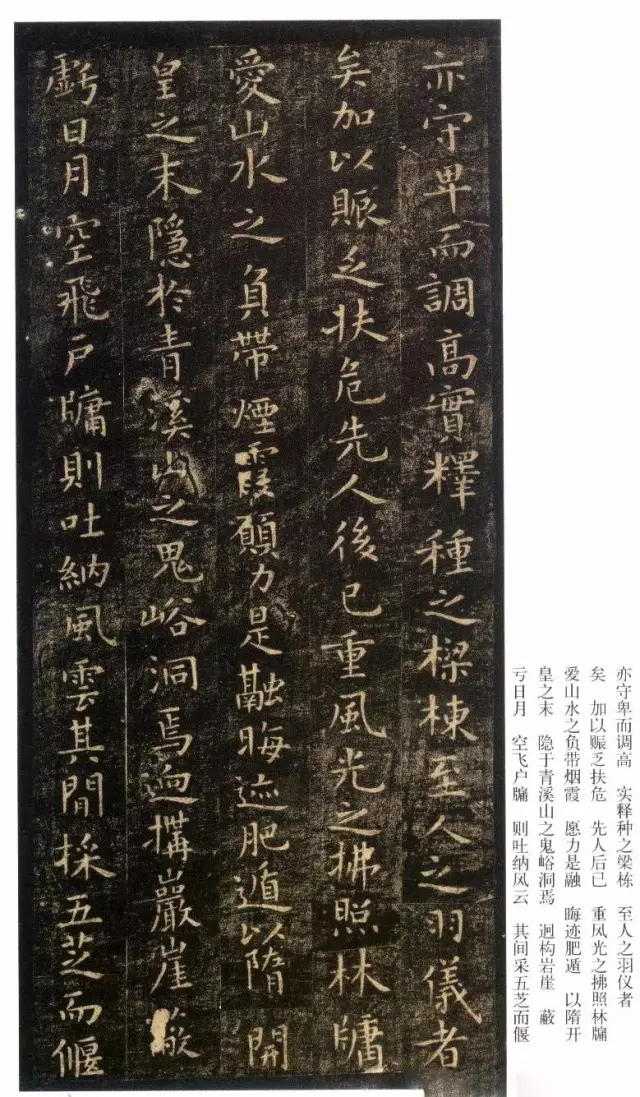 亦守卑而調高實釋種之樑棟至人之羽儀者
矣加以賑乏扶危先人後已重風光之拂照林牗
愛山水之負帶煙霞願力是融晦迹肥遁以隋開
皇之末隱於青溪山之鬼峪洞焉迥搆巖崖蔽
虧日月空飛戶牗則吐納風雲其閒採五芝而偃
亦守卑而调高　实释种之梁栋　至人之羽仪者
矣　加以赈乏扶危　先人后已　重风光之拂照林牖
爱山水之负带烟霞　愿力是融　晦迹肥遁　以隋开
皇之末　隐于青溪山之鬼峪洞焉　迥构岩崖　蔽
亏日月　空飞户牖　则吐纳风云　其间采五芝而偃